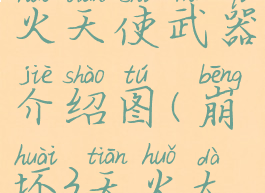 火天使武器
jiè shào tú bēng
介绍图(崩
huài tiān huǒ dà
坏3天火大